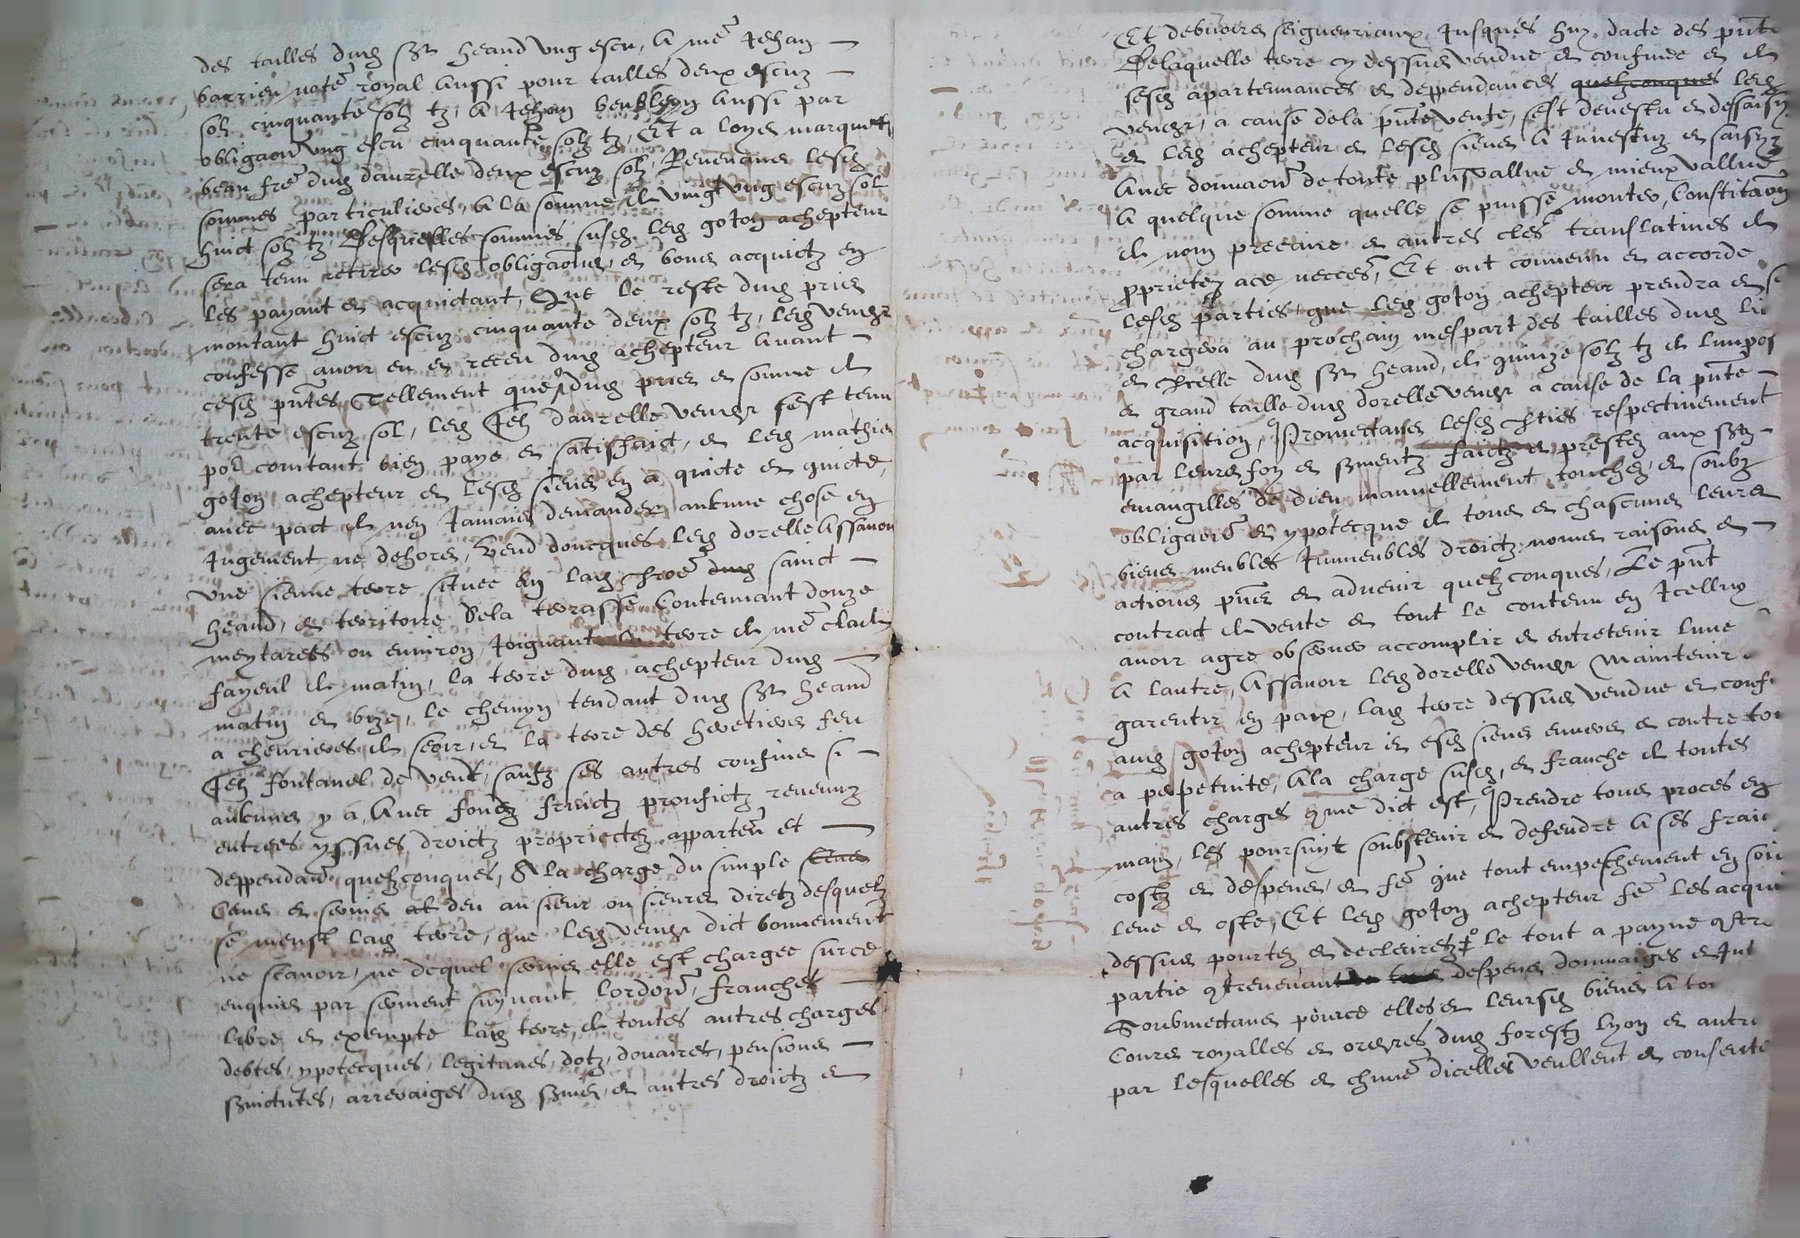 des tailles dud St heand ung escu, A me Jehan
barrieu notre royal aussi pour tailles deux escuz
sol cinquante solz tz, A Jehan aussi par
obligaon ung escu cinquante solz tz, Et a loys marquet
beau fre dud daurelle deux escuz sol, Revenans lesd
sommes particulieres, A la somme de vingt ung escuz sol
huict solz tz, Desquelles sommes susd led goton achepteur
sera tenu retirer lesd obligaons, et bons acquictz en
les payant et acquictant, Que le reste dud pris
montant huict escuz cinquante deux solz tz, led vendr
confesse avoir eu et receu dud achepteur avant
cesd pntes Tellement que dud pris et somme de
trente escuz sol, led Jeh daurelle vendr sest tenu
por comtant bien paye et satisfaict, et led mathieu
goton achepteur et lesd siens en a quicte et quicte,
avec pact de nen Jamais demander aulcune chose en
Jugement ne dehors, Vend doncques led dorelle Assavoir
une sienne terre situee en lad dud sainct
heand, et territoire de la terrasse Contennant douze
meytares ou environ, Joignant la terre de me
fayeul de matin, la terre dud achepteur dud
matin et bize, le chemyn tendant dud St heand
a chevrieres de soir, et la terre des heretiers feu
Jeh fontanel de vent, saufz ses autres confins si
aulcuns y a, Avec fondz fruictz prouffictz revenuz
entrees yssues droictz proprietez apparten et
deppendan quelzconques, A la charge du simple cens
Cens et servis et deu au sieur ou sieurs diretz desquelz
se meust lad terre, que led vendr dict bonnement
ne scavoir, ne dequel servis elle est chargee surce
enquis par serment suyvant lordon, franche
libre et exempte lad terre de toutes autres charges
debtes, ypotecques, legitimes, dotz, douaires, pensions
servitutes, arreraiges dud servis, et autres droictz et
Et debvoirs seigneuriaux Jusques huy dacte des pntes
Delaquelle terre cy dessus vendue et confinee et de
sesd apartennances et deppendances quelzconques led
vendr, a cause de la pnte vente, sest devestu et dessaisy
et led achepteur et lesd siens a Investuz et saisyz
Avec donnaon de toute plusvallue et mieux vallue
A quelque somme quelle se puisse monter, Constitaon
de nom precaire et autres cles translatives de
proprietez ace necces, Et ont convenu et accorde
lesd parties, que led goton achepteur prendra et se
chargera au prochain mespart des tailles dud lieu
et dud St heand, de quinze solz tz de
et grand taille dud dorelle vendr a cause de la pnte
acquisition, Promectans lesd pties respectivement
par leurs foy et sermentz faictz et prestez aux stz
evangilles de dieu manuellement touchez, et soubz
obligaon et ypotecque de tous et chascuns leurs
biens meubles Immeubles droictz noms raisons et
actions pns et advenir quelzconques, Le pnt
contract de vente et tout le contenu en Icelluy
avoir agre observer accomplir et entretenir lune
A lautre, Assavoir led dorelle vendr Maintenir
garentir en paix, lad terre dessus vendue et conf
aud goton achepteur et esd siens envers et contre tous
a perpetuite, A la charge susd, et franche de toutes
autres charges que dict est, Prendre tous proces en
main, les poursuyr soubstenir et defendre A ses fraiz
costz et despens, et fe que tout empeschement en soit
leve et oste, Et led goton achepteur fe les acqui
dessus pourtez et declairez, le tout a payne
partie despens dommaiges et Int
Soubmectans pource elles et leursd biens A tou
Cours royalles et dud forestz lyon et autr
par lesquelles et chune dicelles veullent et consente